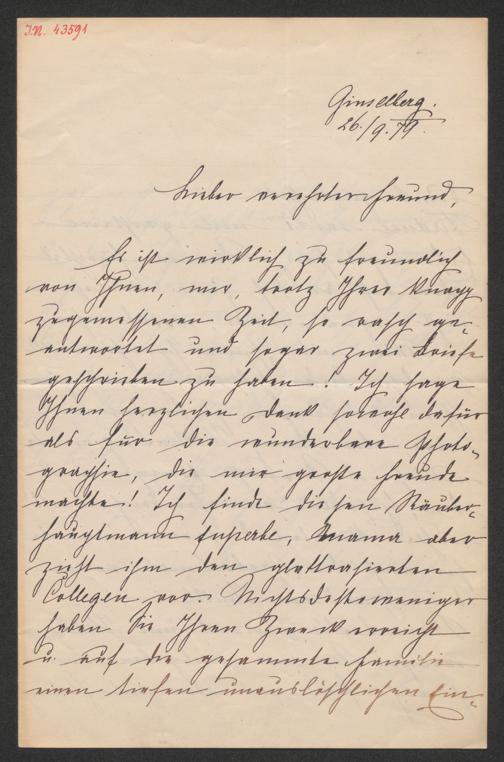 I.N. 43591
Ginselberg.
26./9. 79.
Lieber verehrter Freund,
Es ist wirklich zu freundlich
von Ihnen, mir, trotz Ihrer knapp
zugemessenen Zeit, so rasch ge-
antwortet und sogar zwei Briefe
geschrieben zu haben! Ich sage
Ihnen herzlichen Dank sowohl dafür
als für die wunderbare Photo-
graphie, die mir große Freude
machte! Ich finde diesen Räuber-
hauptmann superbe, Mama aber
zieht ihm den glattrasierten
Collegen vor. Nichtsdestoweniger
haben Sie Ihren Zweck erreicht
u. auf die gesammte Familie
einen tiefen unauslöschlichen Ein-